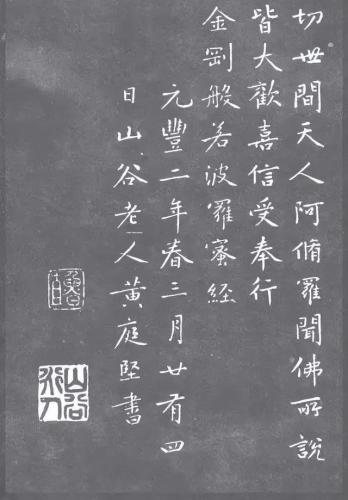 切世間天人阿脩羅聞佛所說
皆大歡喜信受奉行
金剛般若波羅蜜經
元豐二年春三月廿有四
日山谷老人黃庭堅書